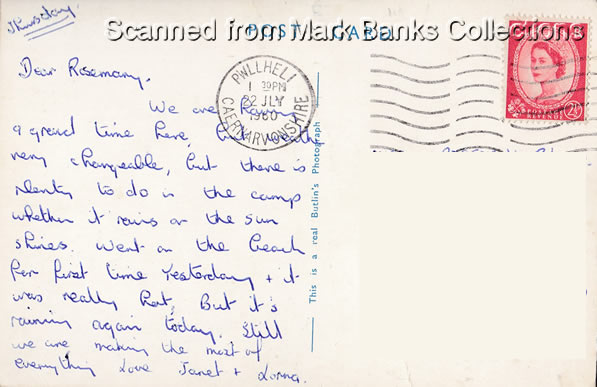 Scanned from Mark Banks Collections
POST CARD
Thursday
PWLLHELI
1 30PM
22 JLY
1960
CAERNARVONSHIRE
POSTAGE
REVENUE
2½D
Dear Rosemary,
We are having
a grand time here, but weather
very changeable, but there is
plenty to do in the camp
whether it rains or the sun
shines. Went on the beach
for first time Yesterday + it
was really hot, But it's
raining again today. Still
we are making the most of
everything Love Janet + Lorna.
This is a real Butlin's Photograph